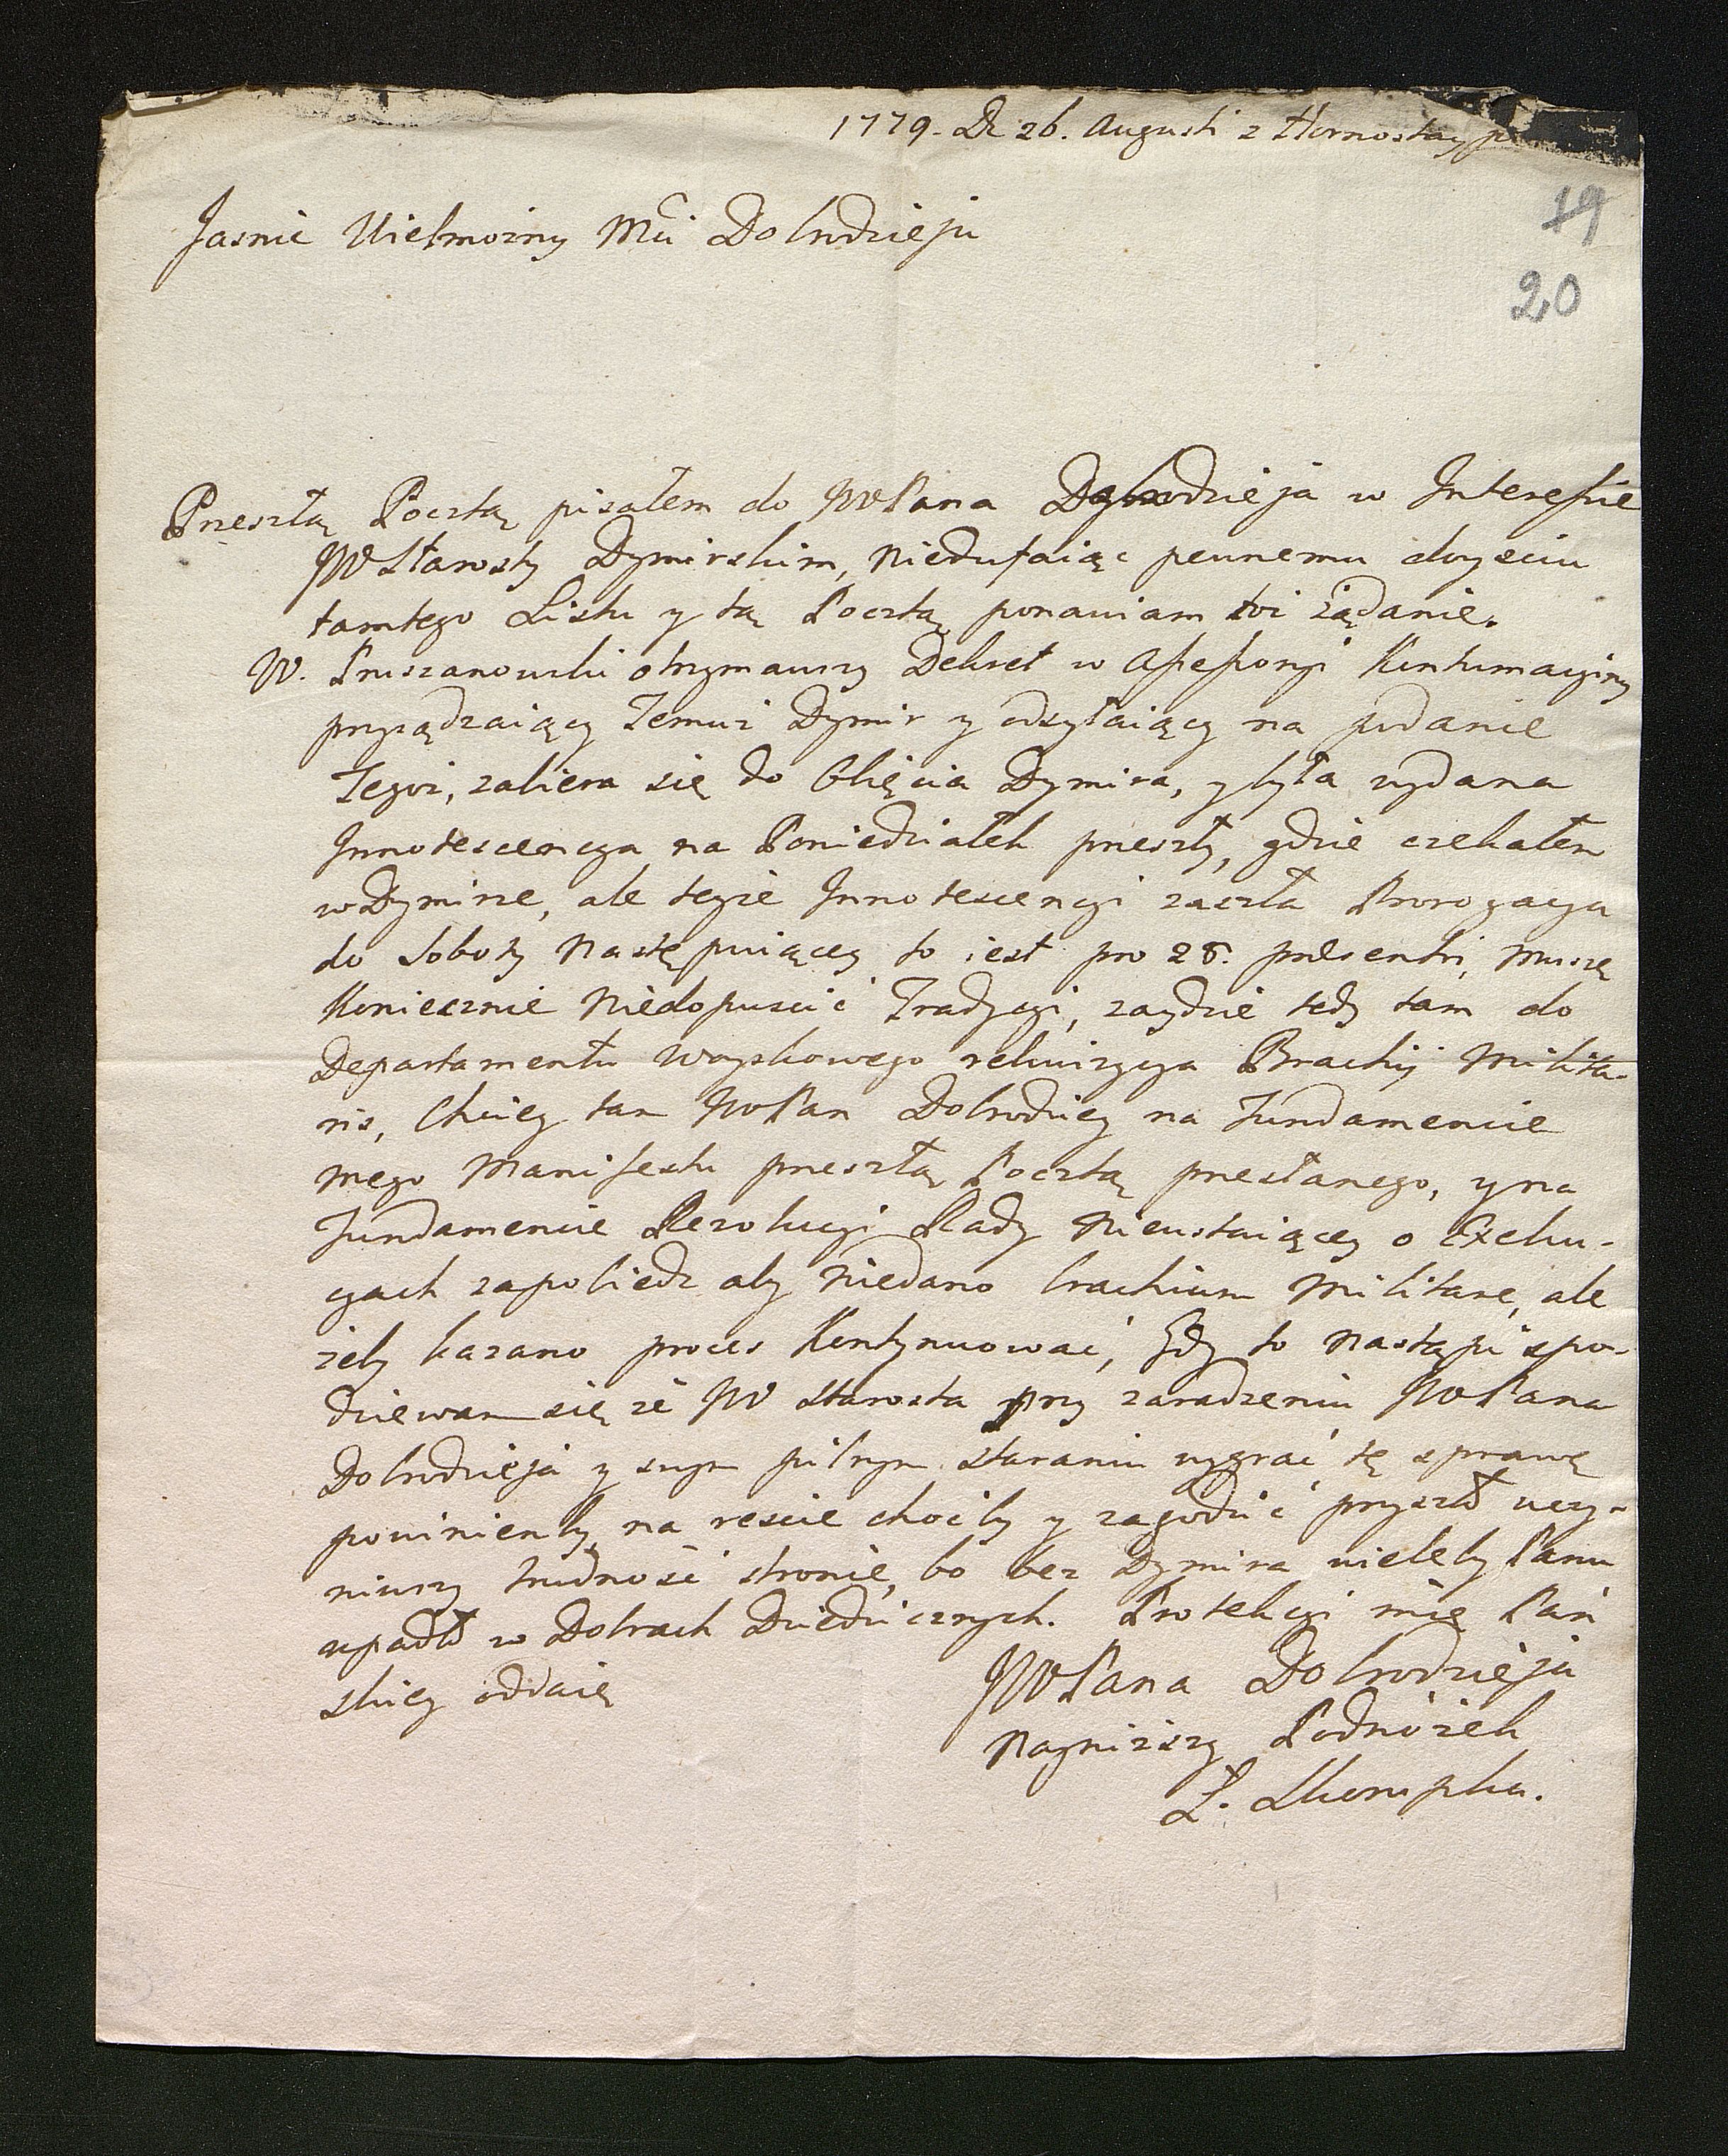 1779. D. 26. Augusti z Hornostayp
19
20
Jasnie Wielmożny Mci Dobrodzieju
Przeszłą Pocztą pisałem do JWPana Dobrodzieja w Interessie
JWStarosty Dymirskim, nieduffaiąc pewnemu doyściu
tamtego Listu y tą Pocztą ponawiam toż żądanie.
W. Pruszanowski otrzymawszy Dekret w Assessoryi Kontumacyiny
przysądzaiący Jemuż Dymir y odsyłaiący na podanie
Tegoż, zabiera się do Obięcia Dymira, y była wydana
Innotescencya na Poniedziałek przeszły, gdzie czekałem
w Dymirze, ale teyże Innotescencyi zaszła Prorogacya
do Soboty następuiącey to iest pro 28. praesentis, muszę
koniecznie niedopuścić Tradycyi, zaydzie tedy tam do
Departamentu Woyskowego rekwizycya Brachij Milita-
ris, Chciey tam JWPan Dobrodziey na Fundamencie
mego Manifestu przeszłą Pocztą przesłanego, y na
Fundamencie Rezolucyi Rady Nieustaiącey o Exeku-
cyach zapobiedz aby niedano brachium Militare, ale
żeby kazano proces Kontynuować, Gdy to nastąpi spo-
dziewam się że JW Starosta przy zaradzeniu JWPana
Dobrodzieja y swym pilnym staraniu wygrać tę sprawę
powinienby, na reście choćby y zagodzić przyszło uczy-
niwszy trudność stronie, bo bez Dymira wieleby Panu
upadło w Dobrach Dziedzicznych. Protekcyi mię Pań
skiey oddaię
JWPana Dobrodzieja
Nayniższy Podnóżek
Z. Skorupka.